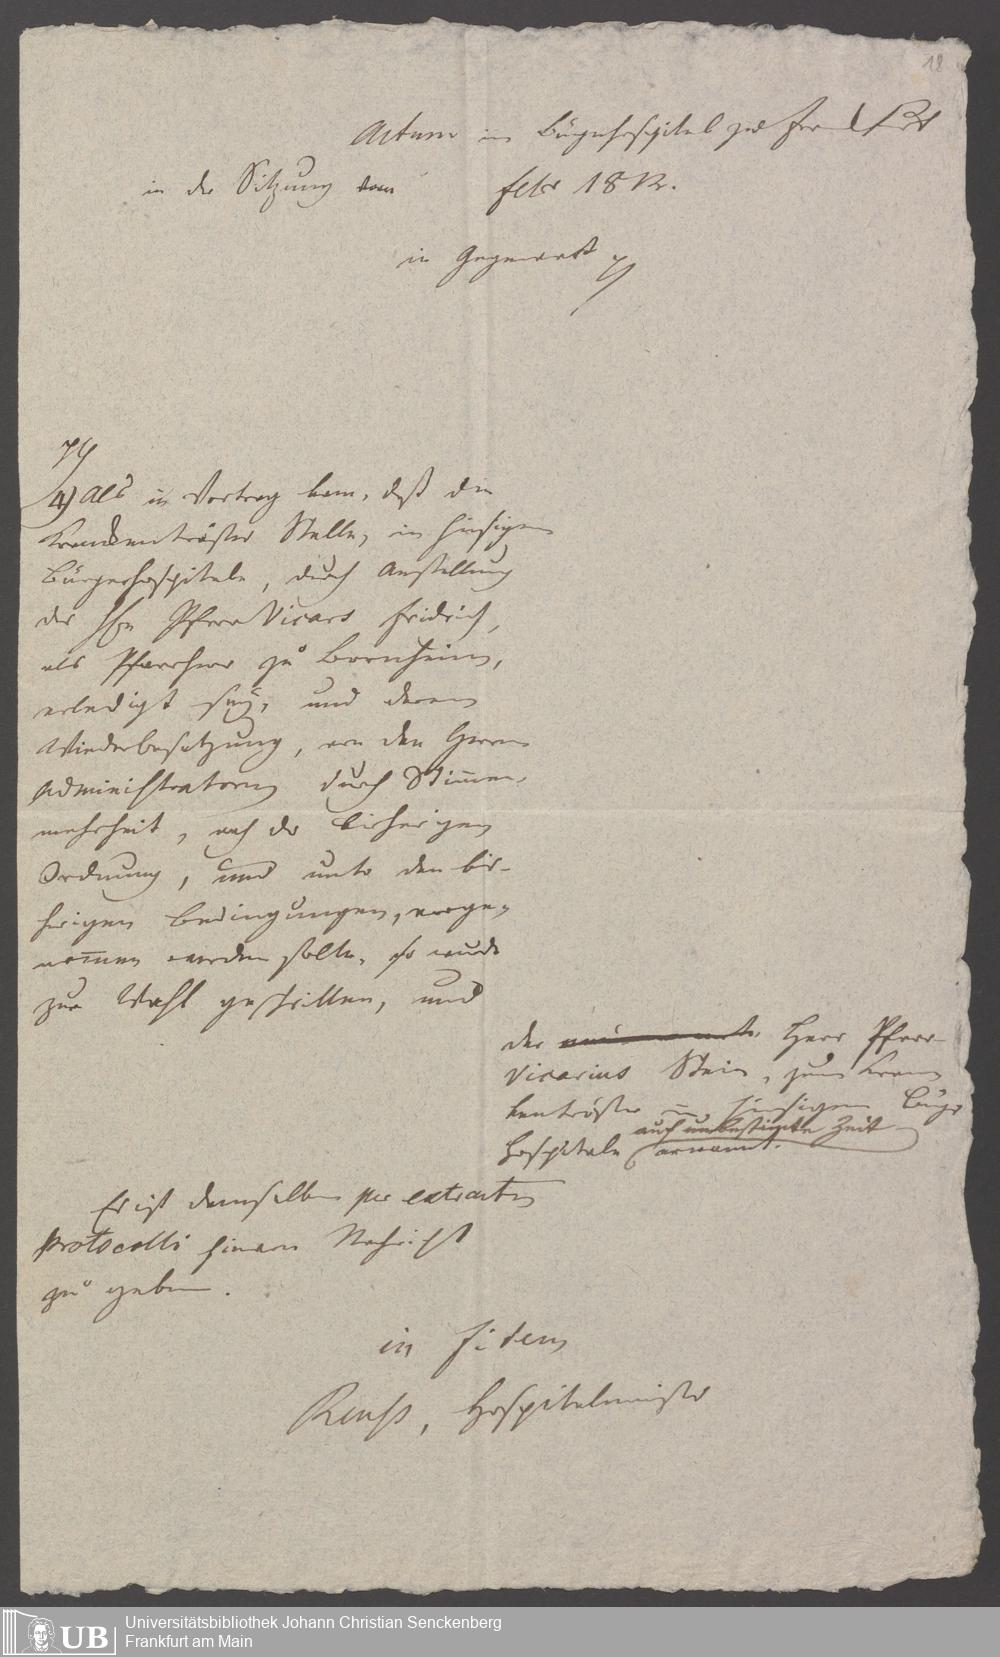 18
Actum im Bürgerhospital zu Frankfurt
in der Sitzung vom Febr 18
in Gegenwart
4) Als in Vortrag kam, daß die
Krankentröster Stelle, im hiesigen
Bürgerhospitale, durch Anstellung
des Hrn Pfarr Vicars Fridrich,
als Pfarrherr zu Bornheim,
erledigt sey, und deren
Wiederbesetzung, von den Herrn
Administratoren durch Stimmen-
mehrheit, nach der bisherigen
Ordnung, und unter den bis-
herigen Bedingungen, vorge-
nommen werden sollte, so wurde
zur Wahl geschritten, und
der Herr Pfarr-
Vicarius Stein, zum Kran
kentröster im hiesigen Bürger
auf unbestimte Zeit
Hospitale ernannt.
Es ist demselben per extractum
Protocolli hievon Nachricht
zu geben.
in fidem
Reuss, Hospitalmeister
Universitätsbibliothek Johann Christian Senckenberg
Frankfurt am Main
UB